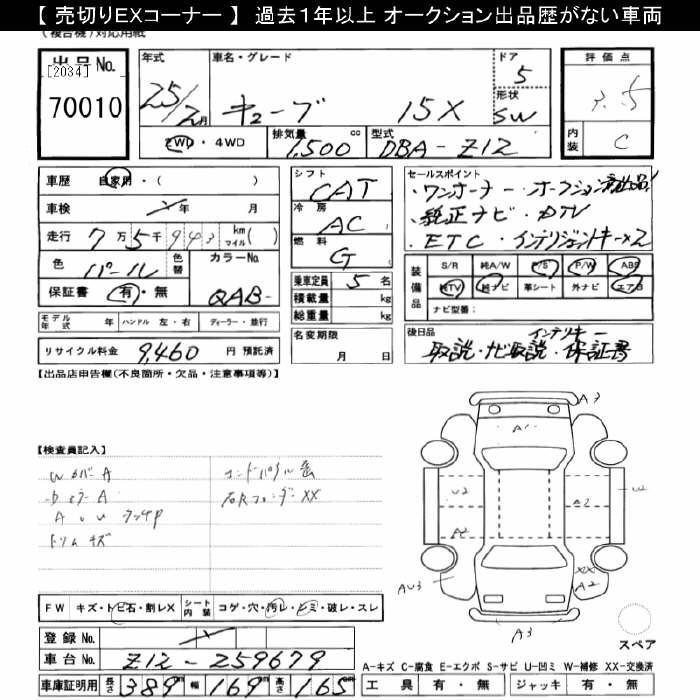 【 売切りEXコーナー 】 過去1年以上 オークション出品歴がない車両
(複合機)対応用紙
出品No. [2034]
70010
年式 25/2月
車名・グレード キューブ 15X
ドア 5
形状 SW
2WD・4WD
排気量 1,500 cc
型式 DBA-Z12
評価点 3.5
内装 C
車歴 自家用・( )
車検 年 月
走行 7万5千943 km マイル( )
色 パール 色替 カラーNo. QAB-
保証書 有・無
モデル年式 年 ハンドル 左・右 ディーラー・並行
リサイクル料金 9,460 円 預託済
シフト CAT
冷房 AC
燃料 G
乗車定員 5 名
積載量 kg
総重量 kg
名変期限 月 日
セールスポイント
・ワンオーナー・オークション初出品!
・純正ナビ・DTV
・ETC・インテリジェントキー×2
装備品 S/R 純A/W P/S P/W ABS
純TV 純ナビ 革シート 外ナビ エアB
ナビ型番:
後日品 インテリキー
取説・ナビ取説・保証書
【出品店申告欄(不良箇所・欠品・注意事項等)】
【検査員記入】
Wカバー A
トリム キズ
コアR フェンダー XX
A3
A1
U2
A2
U2
A2
AU3
XX
A2
A3
スペア
FW キズ・トビ石・割レX シート内装 コゲ・穴・汚レ・シミ・破レ・スレ
登録 No.
車台 No. Z12-259679
車庫証明用 長さ 389 cm 幅 169 cm 高さ 165 cm
A-キズ C-腐食 E-エクボ S-サビ U-凹ミ W-補修 XX-交換済
工具 有・無 ジャッキ 有・無